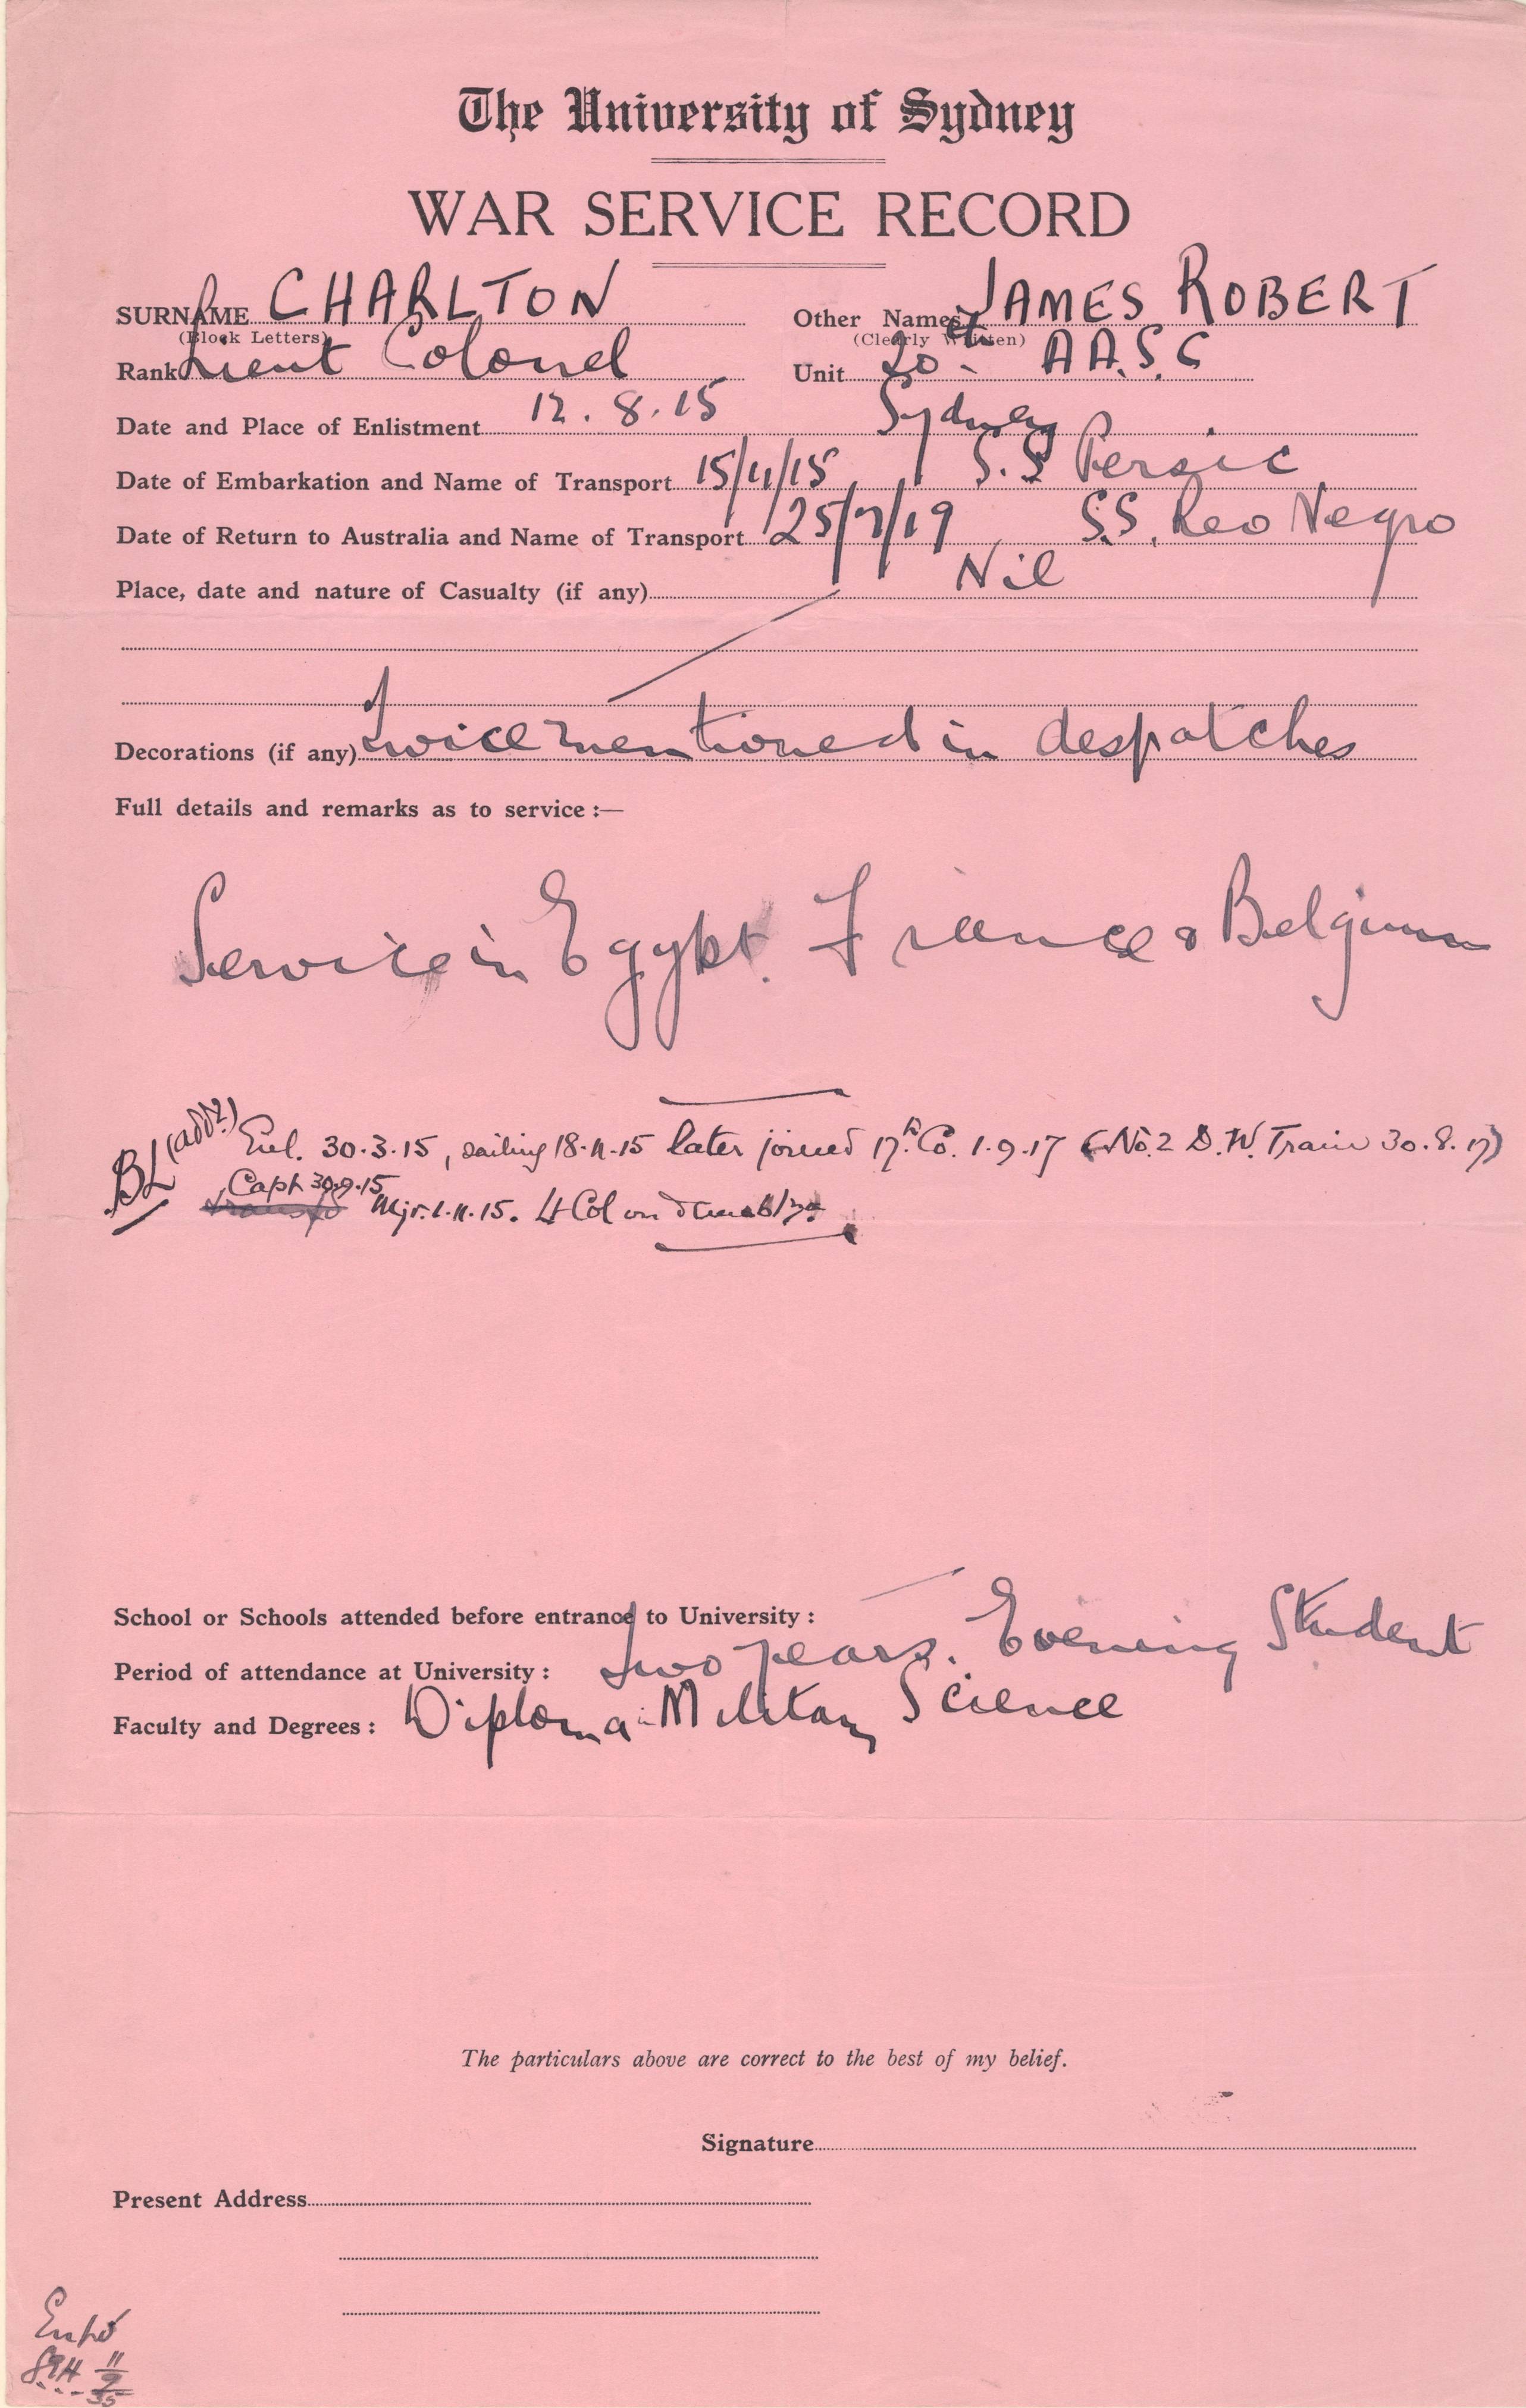 The University of Sydney
WAR SERVICE RECORD
SURNAME CHARLTON Other Names JAMES ROBERT
(Block Letters) (Clearly Written)
Rank Lieut Colonel Unit 20th A.A.S.C
Date and Place of Enlistment 12.8.15 Sydney
Date of Embarkation and Name of Transport 15/11/15 S.S Persic
Date of Return to Australia and Name of Transport 25/7/19 S.S. Reo Negro
Place, date and nature of Casualty (if any) Nil
Decorations (if any) Twice mentioned in despatches
Full details and remarks as to service :—
Service in Egypt. France & Belgium
BL (add?) Enl. 30.3.15, sailing 18.11.15 later joined 17th Co. 1.9.17 (No. 2 D.W. Train 30.8.17)
Capt 30.9.15
Mjr. 1.11.15. Lt Col on
School or Schools attended before entrance to University :
Period of attendance at University : Two years. Evening Student
Faculty and Degrees : Diploma Military Science
The particulars above are correct to the best of my belief.
Signature
Present Address
11
9
35